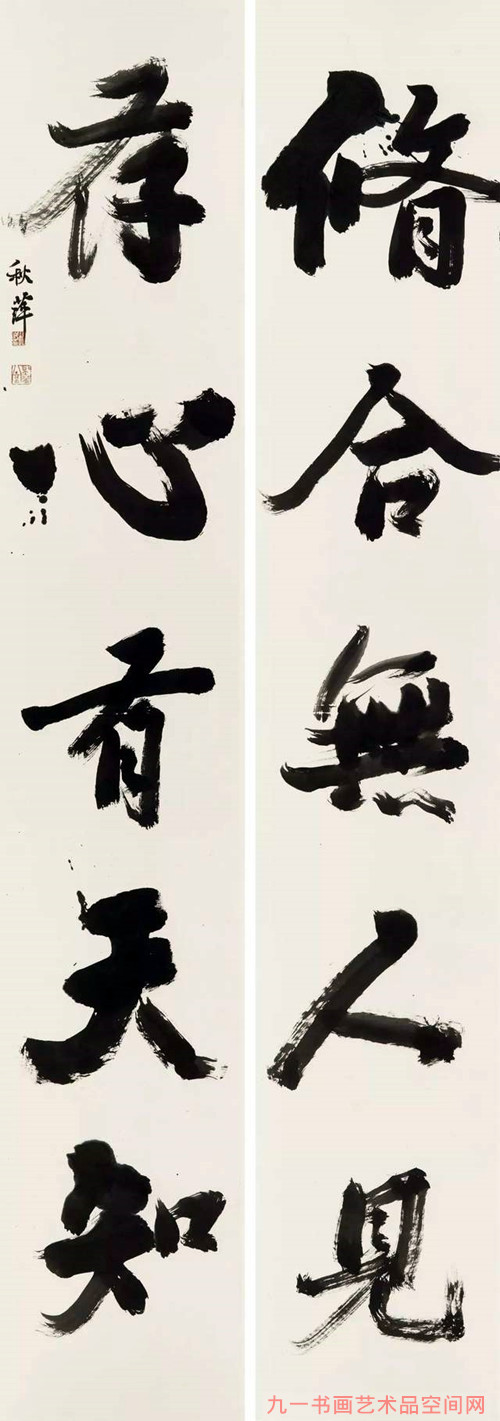 脩合無人見
存心有天知
秋萍
九一书画艺术品空间网